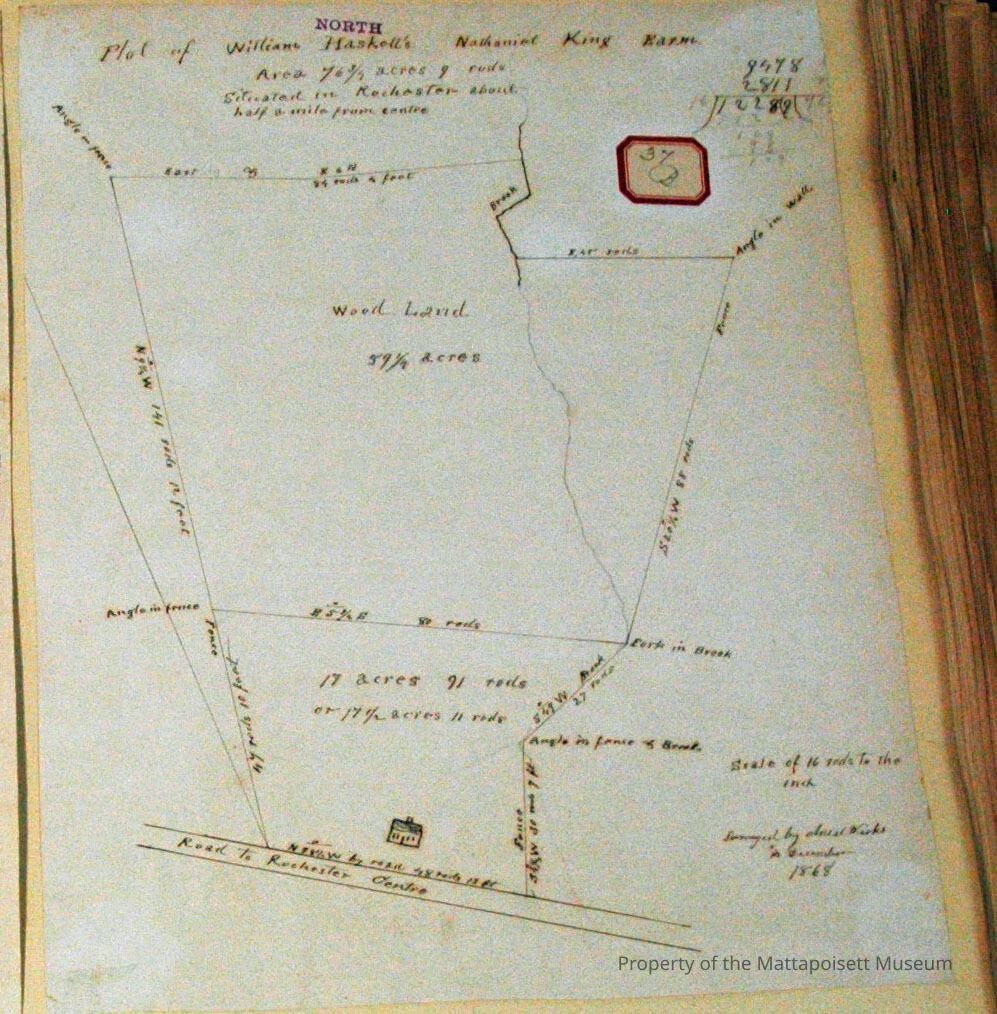 NORTH
Plot of William Haskell's Nathaniel King Farm
Area 76 3/4 acres 9 rods
Situated in Rochester about
half a mile from centre
9478
2811
12289
37
Angle in fence
East
84 rods 4 feet
Brook
E 45° rods
Angle in Wall
Fence
Wood Land
59 1/4 acres
W 141 rods 12 feet
S 20 1/2° W 88 rods
Angle in fence
Fence
80 rods
Fork in Brook
17 acres 91 rods
or 17 1/2 acres 11 rods
S 49° W Brook
27 rods
Angle in fence & Brook
49 rods 10 feet
Fence
W 30 rods 7 ft
Scale of 16 rods to the
inch
Surveyed by
in December
1868
W by road 48 rods 13 ft
Road to Rochester Centre
Property of the Mattapoisett Museum